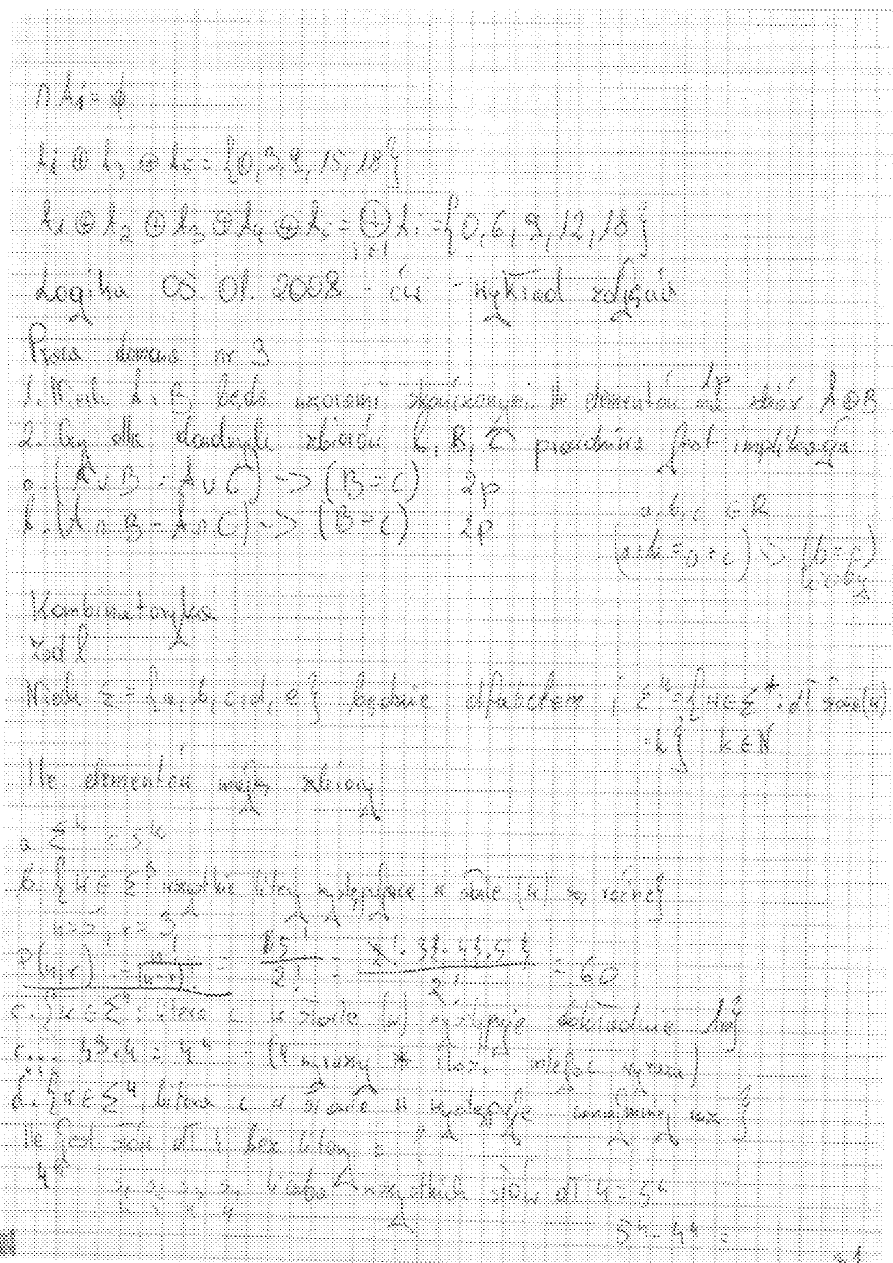 ∩ A₁ = φ
A₁ ⊕ A₃ ⊕ A₅ = {0,3,9,15,18}
A₁ ⊕ A₂ ⊕ A₃ ⊕ A₄ ⊕ A₅ = ⊕ Aᵢ = {0,6,9,12,18}
i=1
Logika 05.01.2008 - ćw - wykład
Praca domowa nr 3
1. Niech A i B będą zbiorami skończonymi. Ile elementów ma zbiór A⊕B 1p
2. Czy dla dowolnych zbiorów A, B, C prawdziwa jest implikacja
a. (A∪B = A∪C) -> (B=C) 2p
b. (A∩B = A∩C) -> (B=C) 2p
a,b,c ∈ R
Kombinatoryka
Zad 1
Niech Σ = {a,b,c,d,e} będzie alfabetem i Σᵏ = {w∈Σ*: dł (w)
=k} k∈N
Ile elementów mają zbiory
a. Σᵏ = 5ᵏ
b. {w∈Σ³ wszystkie litery występujące w słowie (w) są różne}
n=5, r=3
P(n,r) = n!/(n-r)! = 5!/2! = 2!·3·4·5/2! = 60
c. {w∈Σ⁴: litera c w słowie (w) występuje dokładnie 1raz}
4³·4 = 4⁴
d. {w∈Σ⁴, litera c w słowie w występuje raz}
Ile jest słów dł 4 bez litery c
4⁴
liczba wszystkich słów dł 4 = 5⁴
5⁴ - 4⁴ =